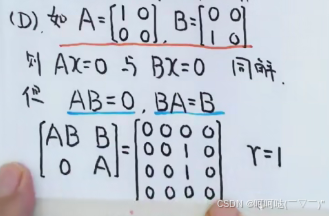 (D). 如 A=[1 0; 0 0], B=[0 0; 1 0]
则 AX=0 与 BX=0 同解.
但 AB=0, BA=B
[AB B; 0 A]=[0 0 0 0; 0 0 1 0; 0 0 1 0; 0 0 0 0] r=1